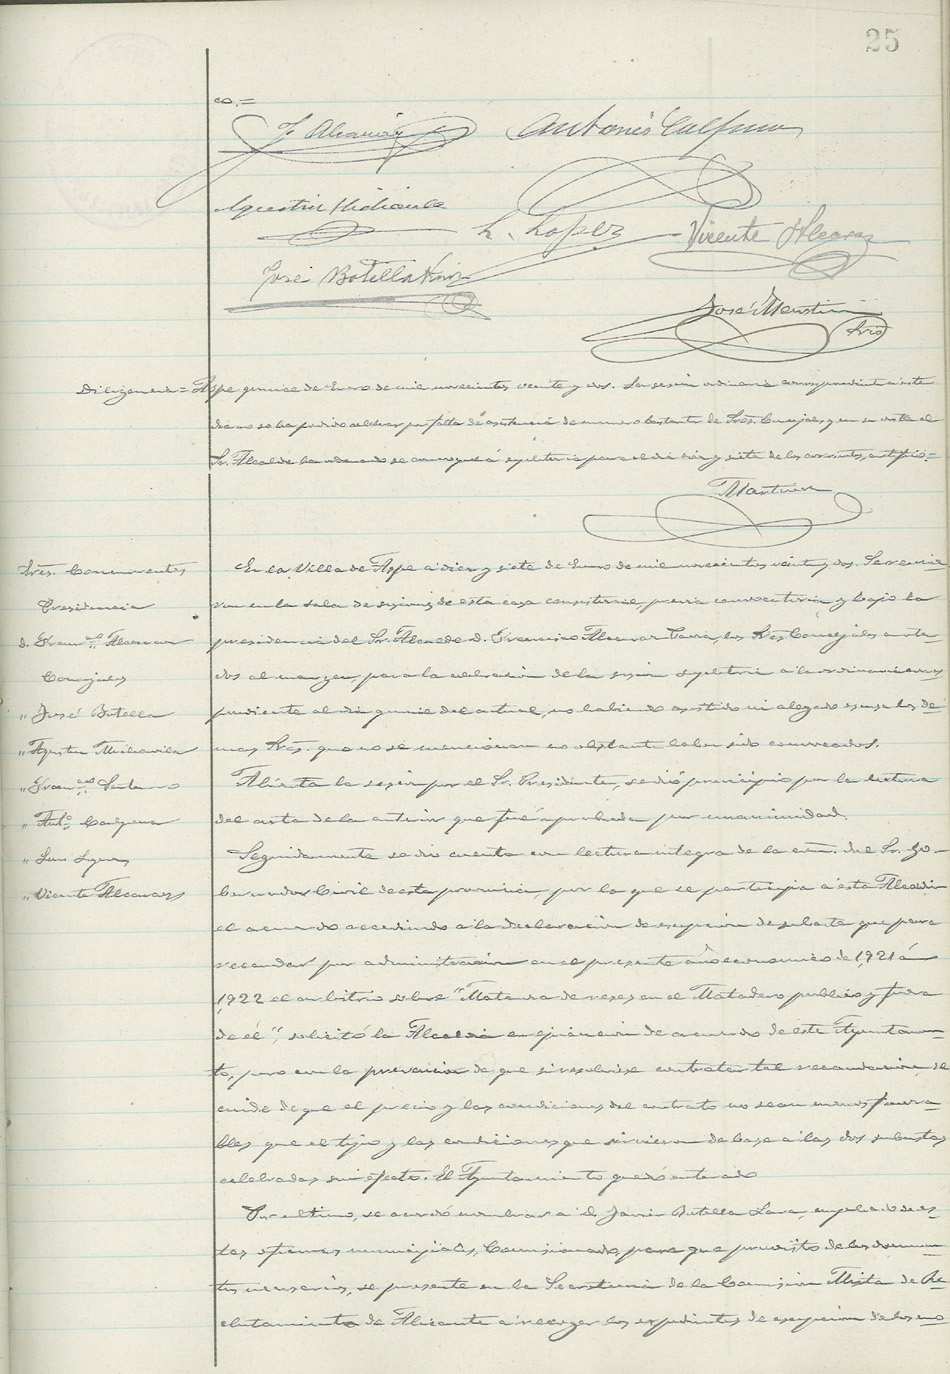 25
co.=
J. Alcaraz
Antonio Calpena
Agustin Mirambell
L. López
Vicente Alcaraz
José Botella
José Martinez
Srio
Diligencia = Aspe quince de Enero de mil novecientos veinte y dos. La sesión ordinaria correspondiente a este
dia no se ha podido celebrar por falta de asistencia de numero bastante de Sres. Concejales y en su vista el
Sr. Alcalde ha ordenado se convoque á supletoria para el dia diez y siete de los corrientes, certifico=
Martinez
Sres. Concurrentes
Presidencia
D. Franco. Alcaraz
Concejales
" José Botella
" Agustin
" Franco.
" Anto. Calpena
" Luis Lopez
" Vicente Alcaraz
En la Villa de Aspe a diez y siete de Enero de mil novecientos veinte y dos. Se reunie-
ron en la sala de sesiones de esta casa consistorial, previa convocatoria y bajo la
presidencia del Sr. Alcalde D. Francisco Alcaraz, los Sres Concejales anota-
dos al margen, para la celebracion de la sesion supletoria a la ordinaria corres-
pondiente al dia quince del actual, no habiendo asistido ni alegado escusa los de-
mas Sres. que no se mencionan no obstante haber sido convocados.
Abierta la sesion por el Sr. Presidente, se dió principio por la lectura
del acta de la anterior que fué aprobada por unanimidad.
Seguidamente se dió cuenta con lectura integra de la com. del Sr. Go-
bernador Civil de esta provincia, por la que se participa á esta Alcaldia
el acuerdo accediendo a la declaracion de escepcion de subasta que para
recaudar por administracion en el presente año economico de 1921 á
1922 el arbitrio sobre "Matanza de reses en el Matadero publico y fuera
de él", solicitó la Alcaldia en ejecucion de acuerdo de este Ayuntamien-
to, pero con la prevencion de que si resolviese contratar tal recaudacion, se
cuide de que el precio y las condiciones del contrato no sean menos favora-
bles que el tipo y las condiciones que sirvieron de base a las dos subastas
celebradas sin efecto. El Ayuntamiento quedó enterado
Por ultimo, se acordó nombrar a D. Javier Botella Lara, empleado de es-
tas oficinas municipales, Comisionado, para que provisto de los documen-
tos necesarios, se presente en la Secretaria de la Comision Mixta de Re-
clutamiento de Alicante a recoger los expedientes de escepcion de los mo